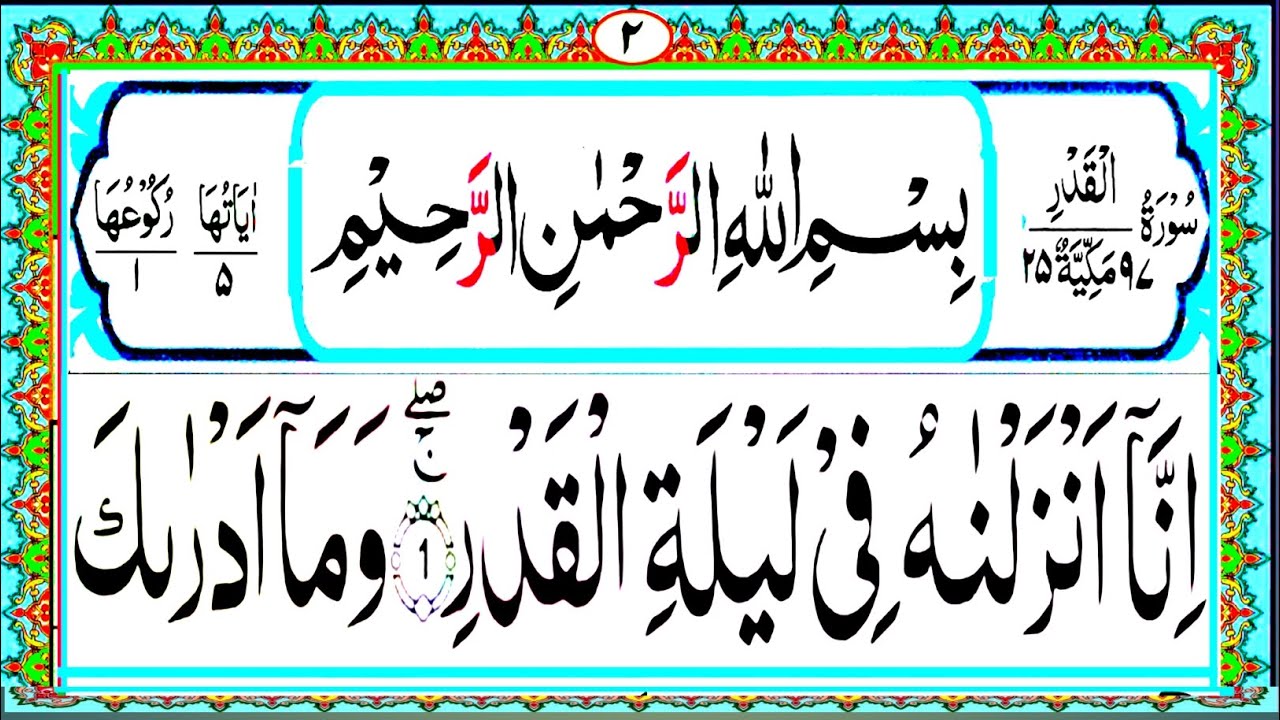 ٢
سُوْرَةُ الْقَدْرِ
٩٧ مَكِّيَّةٌ ٢٥
بِسْمِ اللّٰهِ الرَّحْمٰنِ الرَّحِيْمِ
اٰيَاتُهَا ٥
رُكُوْعُهَا ١
اِنَّاۤ اَنْزَلْنٰهُ فِىْ لَيْلَةِ الْقَدْرِ ۝١ ن صلے وَمَاۤ اَدْرٰىكَ